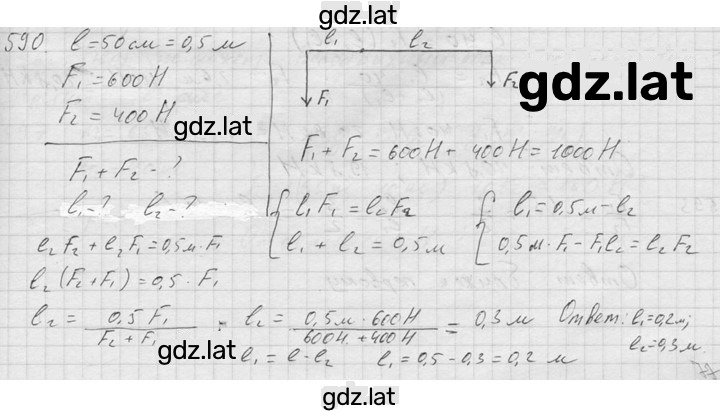 gdz.lat
590. l = 50 см = 0,5 м
F₁ = 600 Н
F₂ = 400 Н
gdz.lat
F₁ + F₂ - ?
l₁ - ? l₂ - ?
l₁ l₂
F₁ F₂
gdz.lat
F₁ + F₂ = 600 Н + 400 Н = 1000 Н
l₁F₁ = l₂F₂
l₁ + l₂ = 0,5 м
l₁ = 0,5 м - l₂
0,5 м · F₁ - F₁l₂ = l₂F₂
l₂F₂ + l₂F₁ = 0,5 м · F₁
l₂(F₂ + F₁) = 0,5 · F₁
l₂ = 0,5 F₁ / F₂ + F₁ ; l₂ = 0,5 м · 600 Н / 600 Н + 400 Н = 0,3 м
Ответ: l₁ = 0,2 м;
l₂ = 0,3 м.
gdz.lat
l₁ = l - l₂ l₁ = 0,5 - 0,3 = 0,2 м
gdz.lat